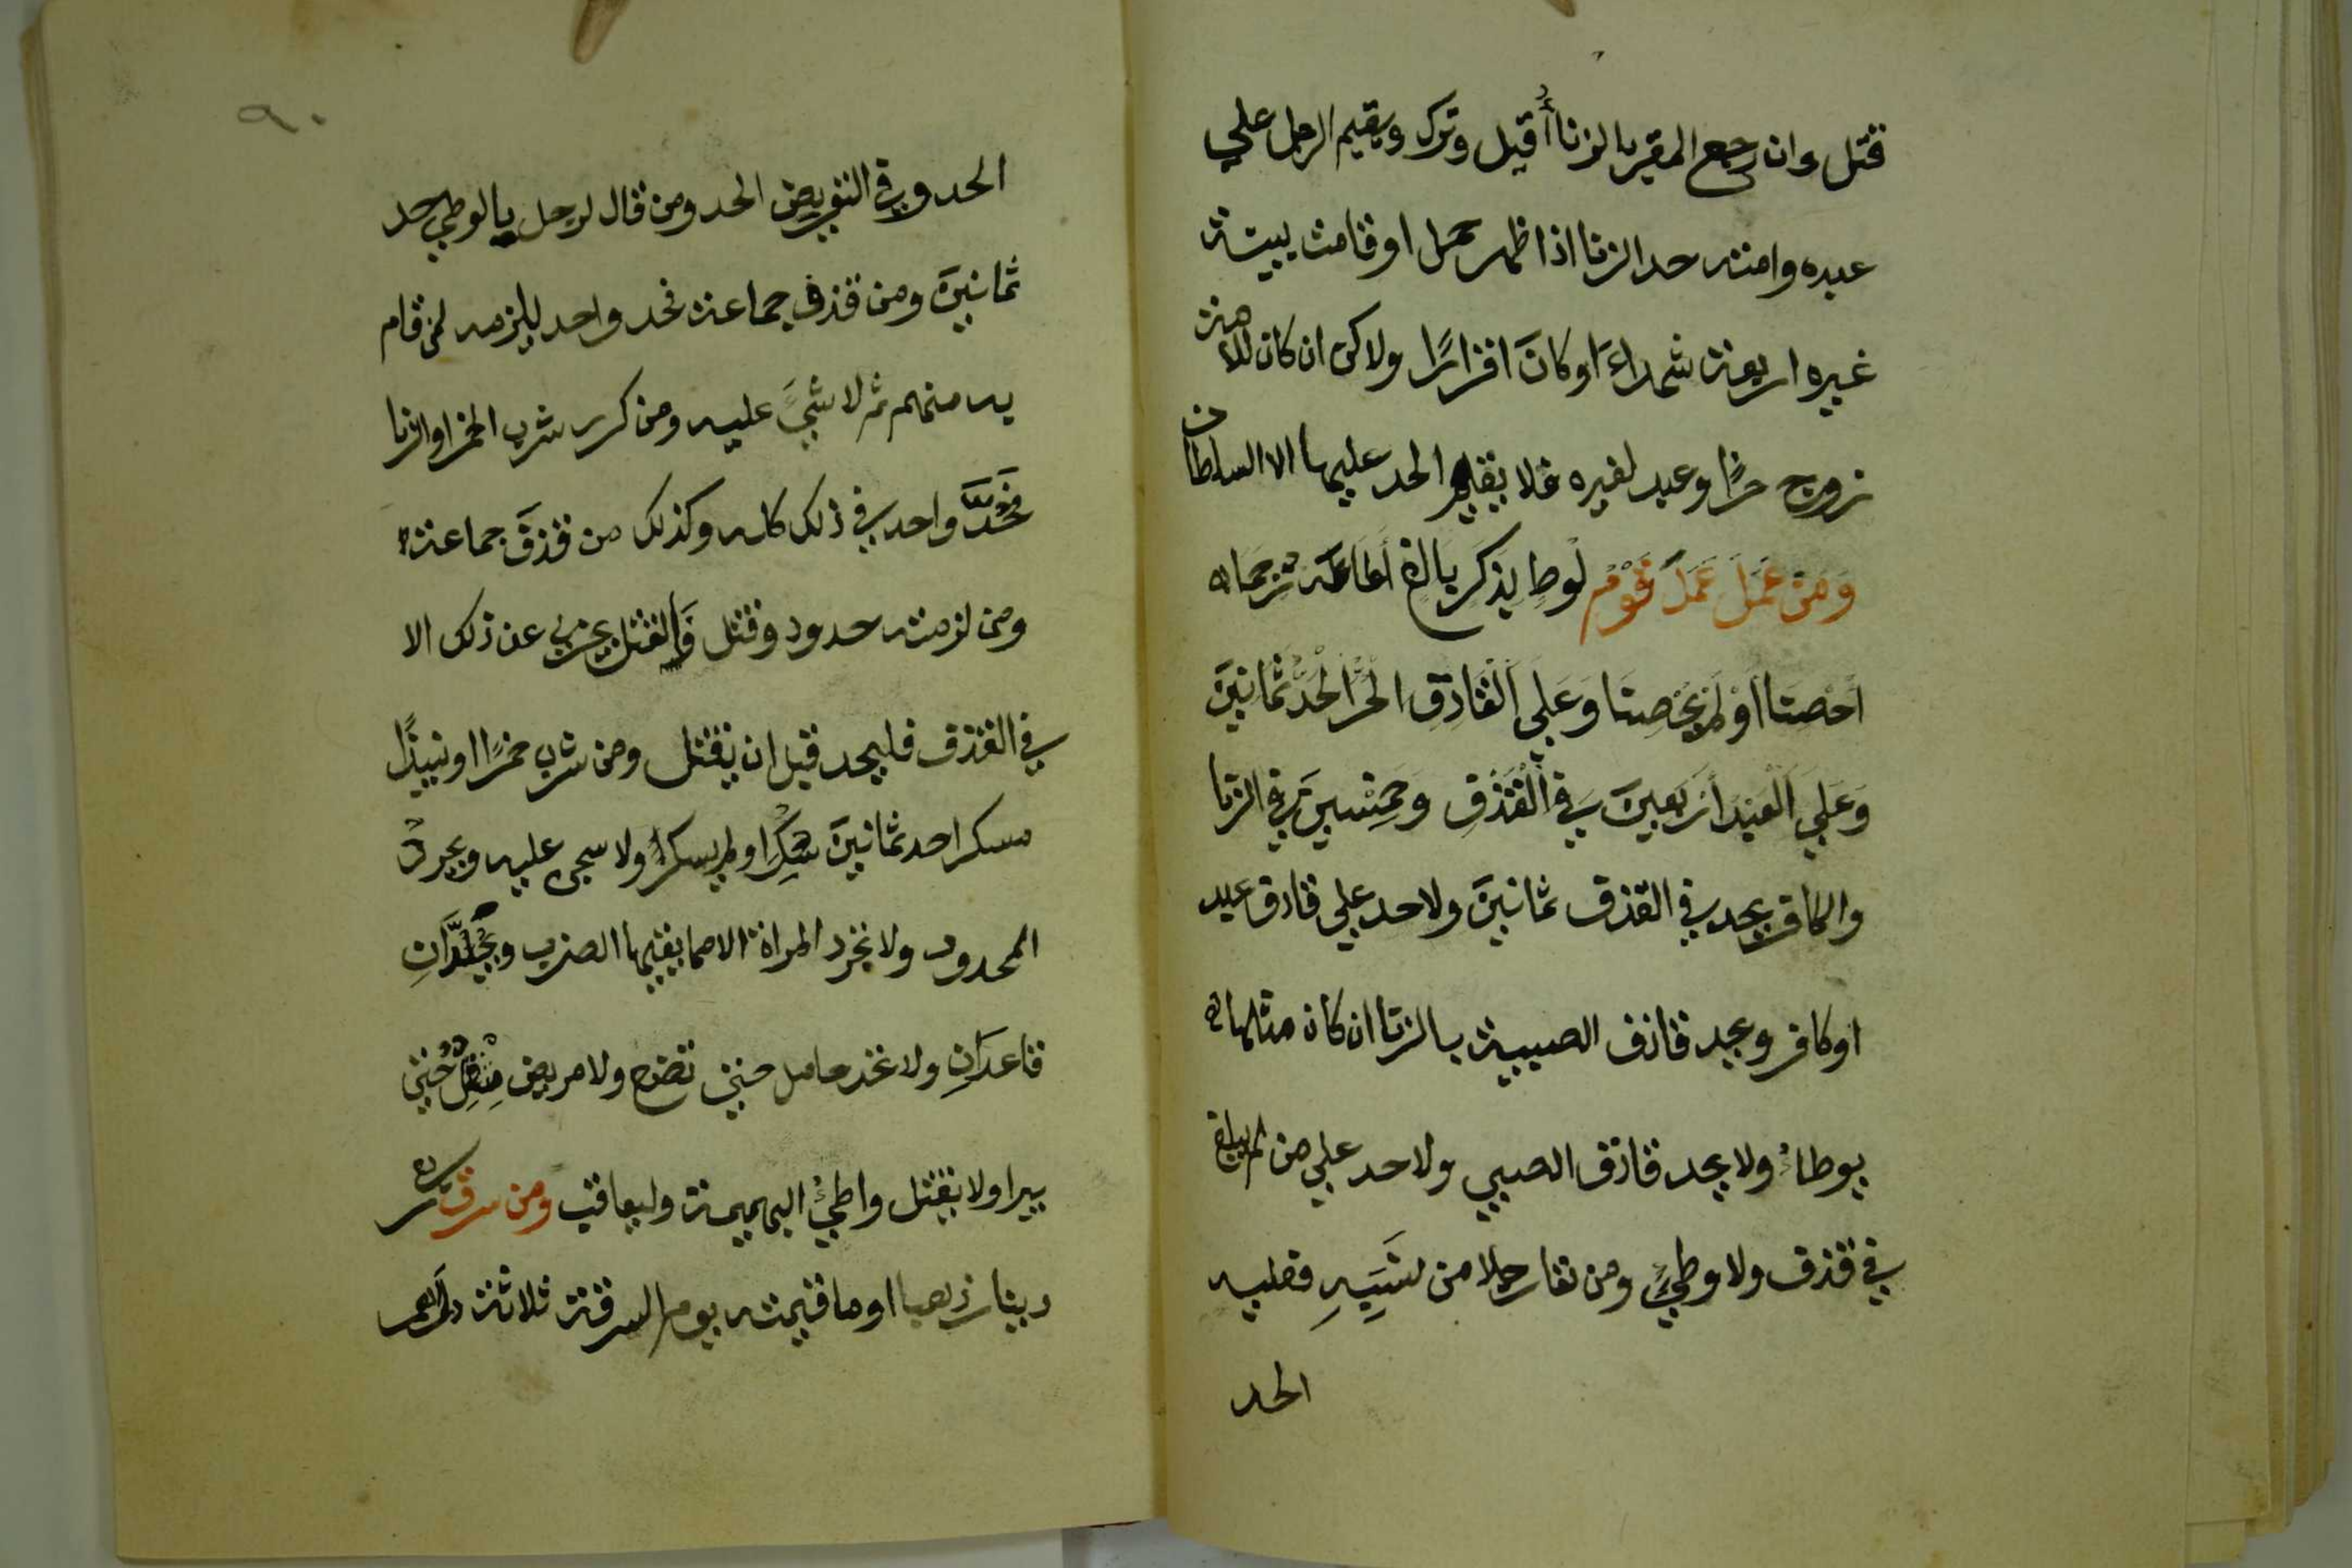 قتل وان رجع المقر بالزنا أقيل وترك ويقيم الرجل علي
عبده وامته حد الزنا اذا ظهر حمل او قامت بينة
غيره اربعة شهداء او كان اقرارا ولاكن ان كان للامة
زوج حرا وعبد لغيره فلا يقيم الحد عليها الا السلطان
وَمَن عَمَلَ عَمَلَ قَوْمِ لُوطٍ بِذَكَرٍ بَالِغٍ أَطَاعَهُ رُجِمَا
أَحْصَنَا أَوْ لَمْ يُحْصِنَا وَعَلَي الْقَاذِفِ الحُرِّ الْحَدُّ ثَمَانِينَ
وَعَلَي الْعَبْدِ أَرْبَعِينَ فِي الْقَذْفِ وَخَمْسِينَ فِي الزنا
والكافر يحد في القذف ثمانينَ ولا حد علي قاذف عبد
او كافر ويحد قاذف الصبية بالزنا ان كان مثلها
يوطاء ولا يحد قاذف الصبي ولا حد علي من لم يبلغ
في قذف ولا وطيء ومن نفا رجلا من نسَبِهِ فعليه
الحد
٩٠
الحد وفي التعريض الحد ومن قال لرجل يا لوطي حد
ثمانينَ ومن قذف جماعة فحد واحد يلزمه لمن قام
به منهم ثم لا شيءَ عليه ومن كرر شرب الخمر او الزنا
فَحَدٌّ واحد في ذلك كله وكذلك من قذفَ جماعة
ومن لزمته حدود وقتل فَالقتل يجزي عن ذلك الا
في القذف فليحد قبل ان يقتل ومن شرب خمرًا او نبيذًا
مسكرا حد ثمانينَ سَكِرَ او لم يسكر ولا سجن عليه ويجرد
المحدود ولا تجرد المراة الا مما يقيها الضرب ويُجْلَدَانِ
قاعدَانِ ولا تحد حامل حتي تضع ولا مريض مُثْقِلٌ حتي
يبرا ولا يقتل واطيُ البهيمة وليعاقب ومن سرق ربع
دينار ذهبا او ما قيمته يوم السرقة ثلاثة دراهم